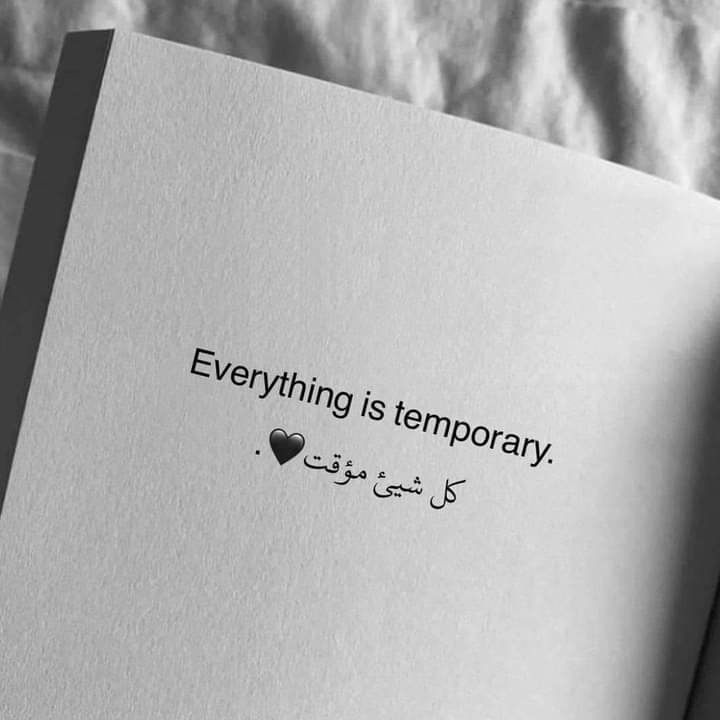 Everything is temporary.
كل شيئ مؤقت🖤 .